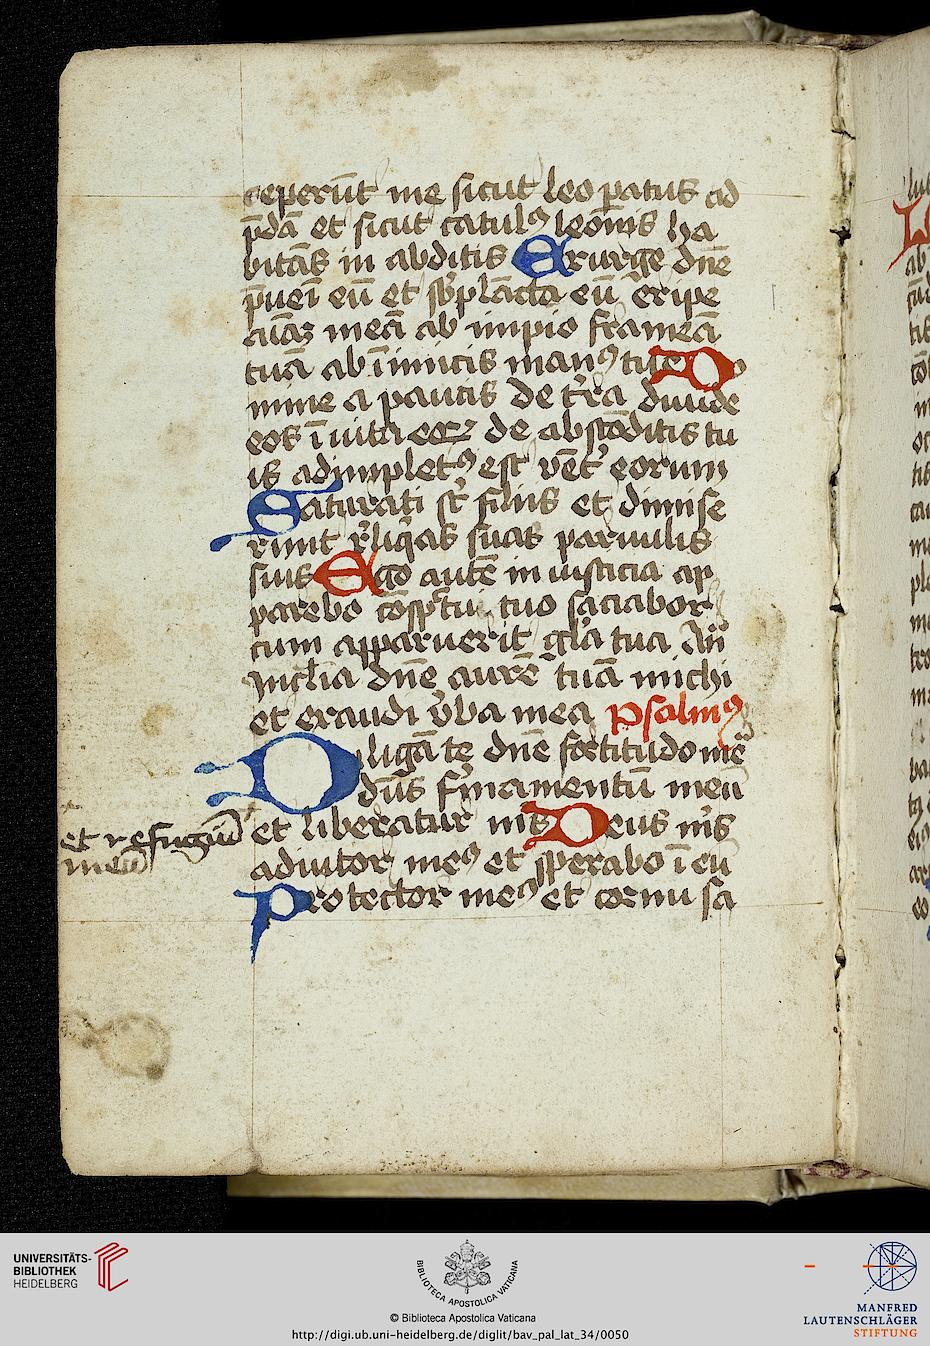 ceperūt me sicut leo patus ad
p̄dā et sicut catulꝰ leonis ha
bitās in abditis Exurge dn̄e
p̄ueī eū et sb̓plāta eū eripe
aīaꝫ meā ab impio frameā
tuā ab īimicis manꝰ tue Do
mine a paucis de tr̄a diuide
eos ī uita eoꝝ de abscōditis tu
is adimpletꝰ est vēt̓ eorum
Saturati st̄ filiis et dimise
runt r̄liq̄as suas paruulis
suis Ego autē in iusticia ap
parebo cōsp̄tui tuo saciabor
cum apparuerit gl̄a tua Añ
Inclīa dn̄e aurē tuā michi
et exaudi v̓ba mea Psalmꝰ
Diligā te dn̄e fortitudo mēa
dn̄s firmamentū meū
et refugiū
meū
et liberatur m̄s Deus m̄s
adiutor meꝰ et sperabo ī eū
Protector meꝰ et cornu sa
UNIVERSITÄTS-
BIBLIOTHEK
HEIDELBERG
BIBLIOTECA APOSTOLICA VATICANA
© Biblioteca Apostolica Vaticana
http://digi.ub.uni-heidelberg.de/diglit/bav_pal_lat_34/0050
MANFRED
LAUTENSCHLÄGER
STIFTUNG